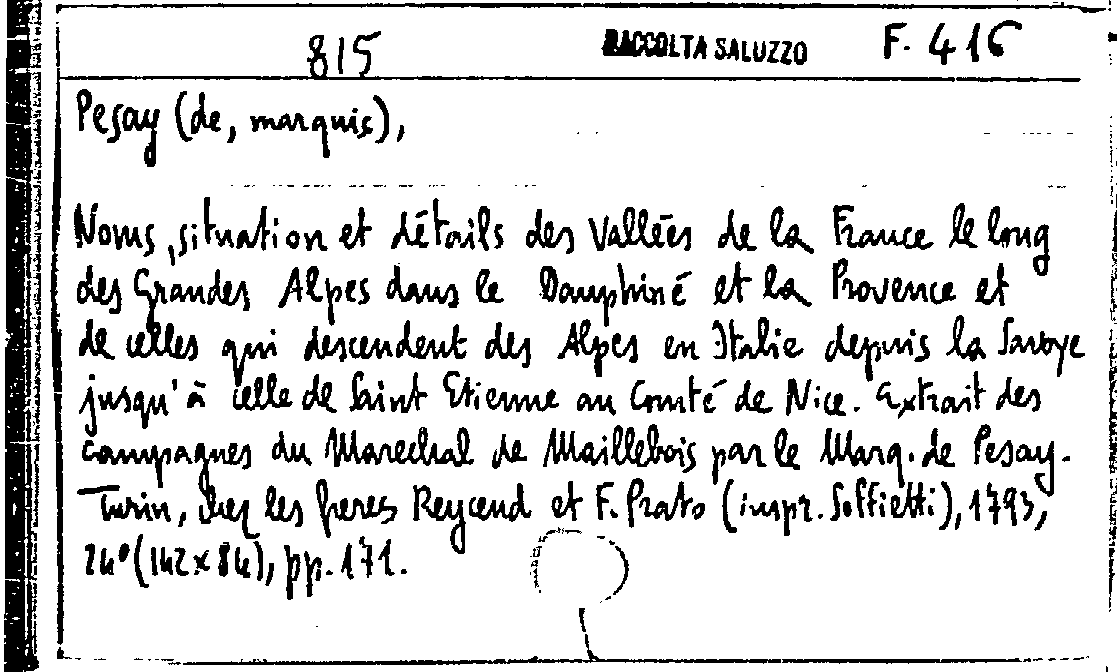 815 RACCOLTA SALUZZO F. 416
Pesay (de, marquis),
Noms, situation et détails des Vallées de la France le long
des Grandes Alpes dans le Dauphiné et la Provence et
de celles qui descendent des Alpes en Italie depuis la Savoye
jusqu'à celle de Saint Etienne au Comté de Nice. Extrait des
campagnes du Marechal de Maillebois par le Marq. de Pesay.
Turin, chez les freres Reycend et F. Prato (impr. Soffietti), 1793,
24° (142x84), pp. 171.